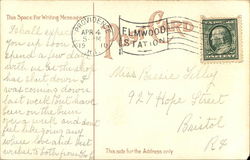 This Space For Writing Messages
POST CARD
PROVIDENCE
APR 4
19 10
R.I.
ELMWOOD
STATION
I shall expect
you up soon to
spend a few days
with us. As the shop
has shut down. I
was coming down
last week but have
been on the bum
for a week and don't
feel like going any
where
love and best
wishes to both
Miss Bessie Lilley
927 Hope Street
Bristol
R.I.
This side for the Address only